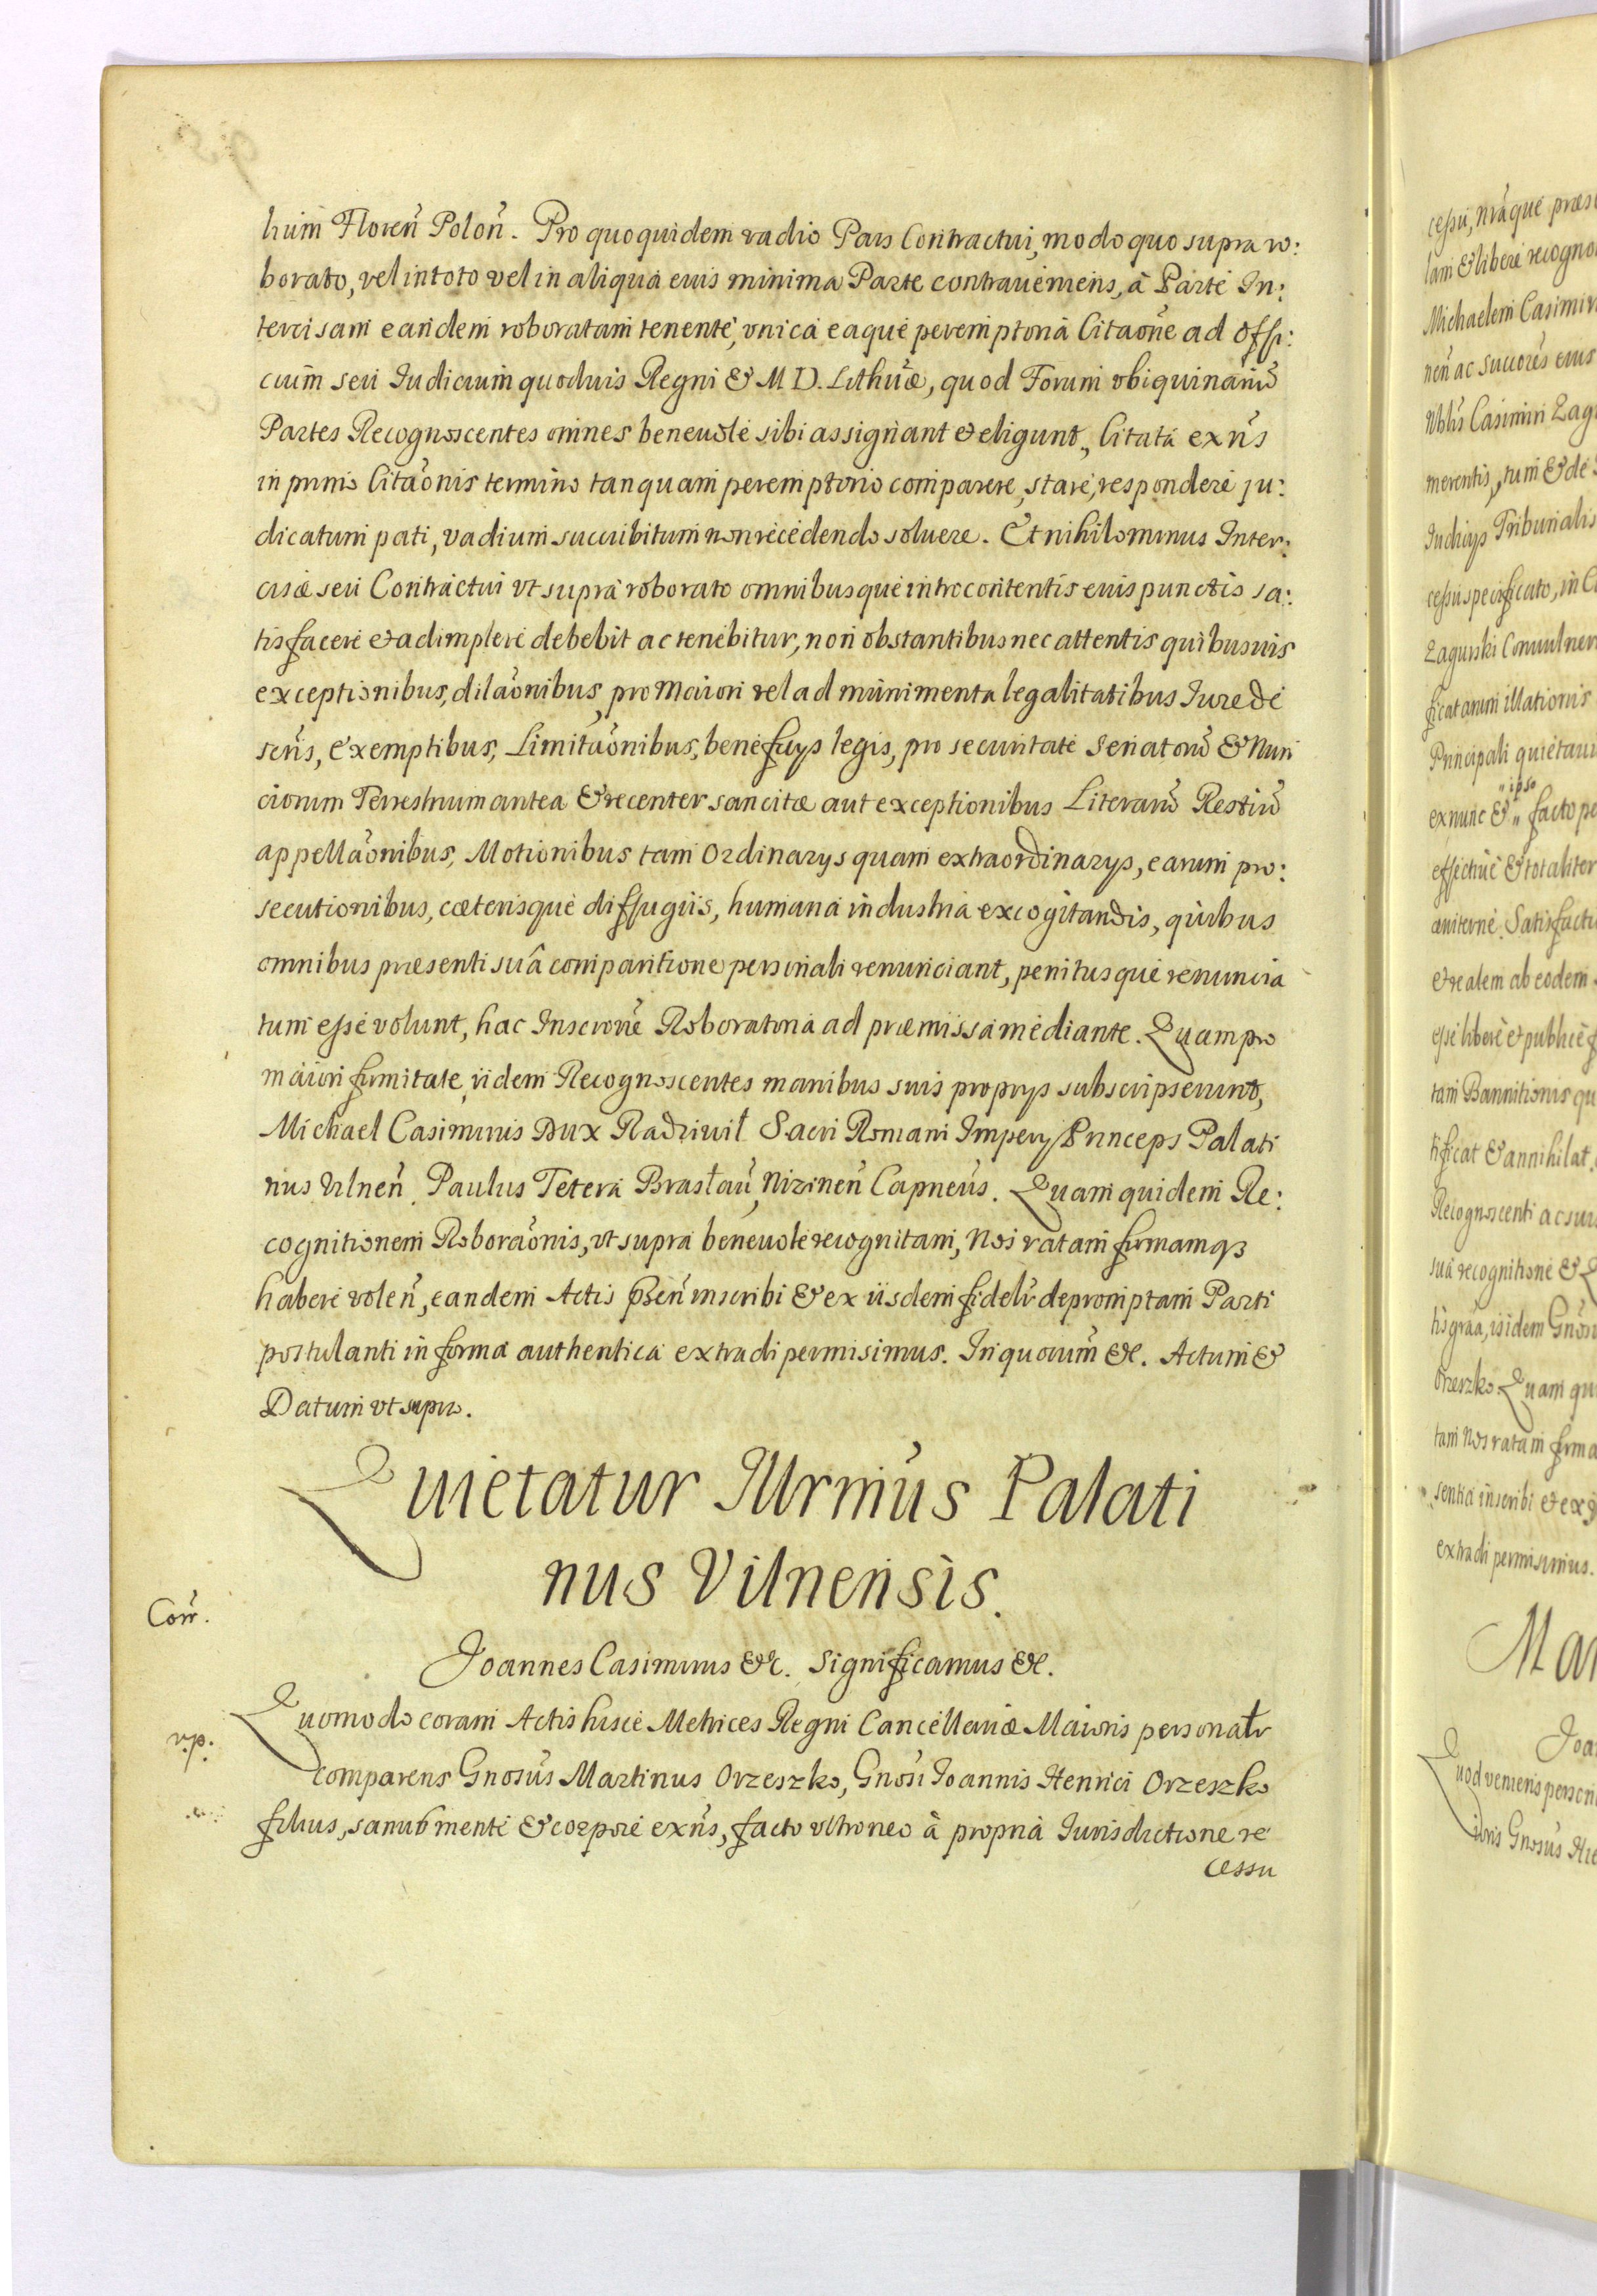 lium Floreñ Poloñ. Pro quo quidem vadio Pars Contractui, modo quo supra ro:
borato, vel in toto vel in aliqua euis minima Parte contraueniens, à Parte In:
tercisam eandem roboratam tenente, vnica eaque peremptoria Citaōne ad Offi:
cium seu Iudicium quoduis Regni & M D. Lithũæ, quod Forum vbiquinariũ
Partes Recognoscentes omnes beneuole sibi assignant & eligunt, Citata exñs
in primo Citaōnis termino tanquam peremptorio comparere, stare, respondere ju:
dicatum pati, vadium succubitum non recedendo soluere. Et nihilominus Inter:
cisæ seu Contractui vt supra roborato omnibusque introcontentis euis punctis sa:
tisfacere & adimplere debebit ac tenebitur, non obstantibus nec attentis quibusuis
exceptionibus, dilaōnibus pro maiori vel ad munimenta legalitatibus Iure de
señs, exemptibus, Limitaōnibus, beneficys legis, pro securitate Senatorũ & Nun
ciorum Terrestrium antea & recenter sancitæ aut exceptionibus Literarũ Restiũ
appellaōnibus, Motionibus tam Ordinarys quam extraordinarys, earum pro:
secutionibus, cæterisque diffugiis, humana industria excogitandis, quibus
omnibus præsenti suâ comparitione personali renunciant, penitusque renuncia
tum esse volunt, hac Inscriōne Roboratoria ad præmissa mediante. Quam pro
maiori firmitate, iidem Recognoscentes manibus suis proprys subscripserunt,
Michael Casimirus Dux Radziwił Sacri Romani Impery Princeps Palati
nus Vilneñ Paulus Tetera Brasłaũ, Nizineñ Capneũs. Quam quidem Re:
cognitionem Roboraōnis, vt supra beneuole recognitam, Nos ratam firmamqз
habere voleñ, eandem Actis p̃señ inscribi & ex iisdem fidelr̃ depromptam Parti
postulanti in forma authentica extradi permisimus. In quorum̃ &c. Actum &
Datum vt supra.
Quietatur Illrmũs Palati
nus Vilnensis.
Corr.
Joannes Casimirus &c. Significamus &c.
Quomodo coram Actis hisce Metrices Regni Cancellariæ Maioris personalr̃
v.p.
comparens Gnosũs Martinus Orzeszko, Gnosi Joannis Henrici Orzeszko
filius, sanus mente & corpore exñs, facto vltroneo à propria Iurisdictione re
cessu
cessu, nr̃aque præs
lam & libere recogno
Michaelem Casimir
neñ ac Succores̃ euis
Nblis̃ Casimiri Zag
merentis, tum & de
Iudicys Tribunalis
cessu specificato, in C
Zagurski Conuulner
ficatarum illationis
Principali quietau
ipso
exnunc & facto pe
effectiue & totaliter
æuiterne. Satisfacti
& realem ab eodem
esse libere & publice
tam Bannitionis qu
tificat & annihilat.
Recognoscenti ac sui
sua recognitione & Q
tis graa, isidem Gnõsu
Orzeszko. Quam qui
tam Nos ratam firma
sentia inscribi & ex
extradi permisimus.
Man
Joa
Quod veniens person
ioris Gnosũs Hie